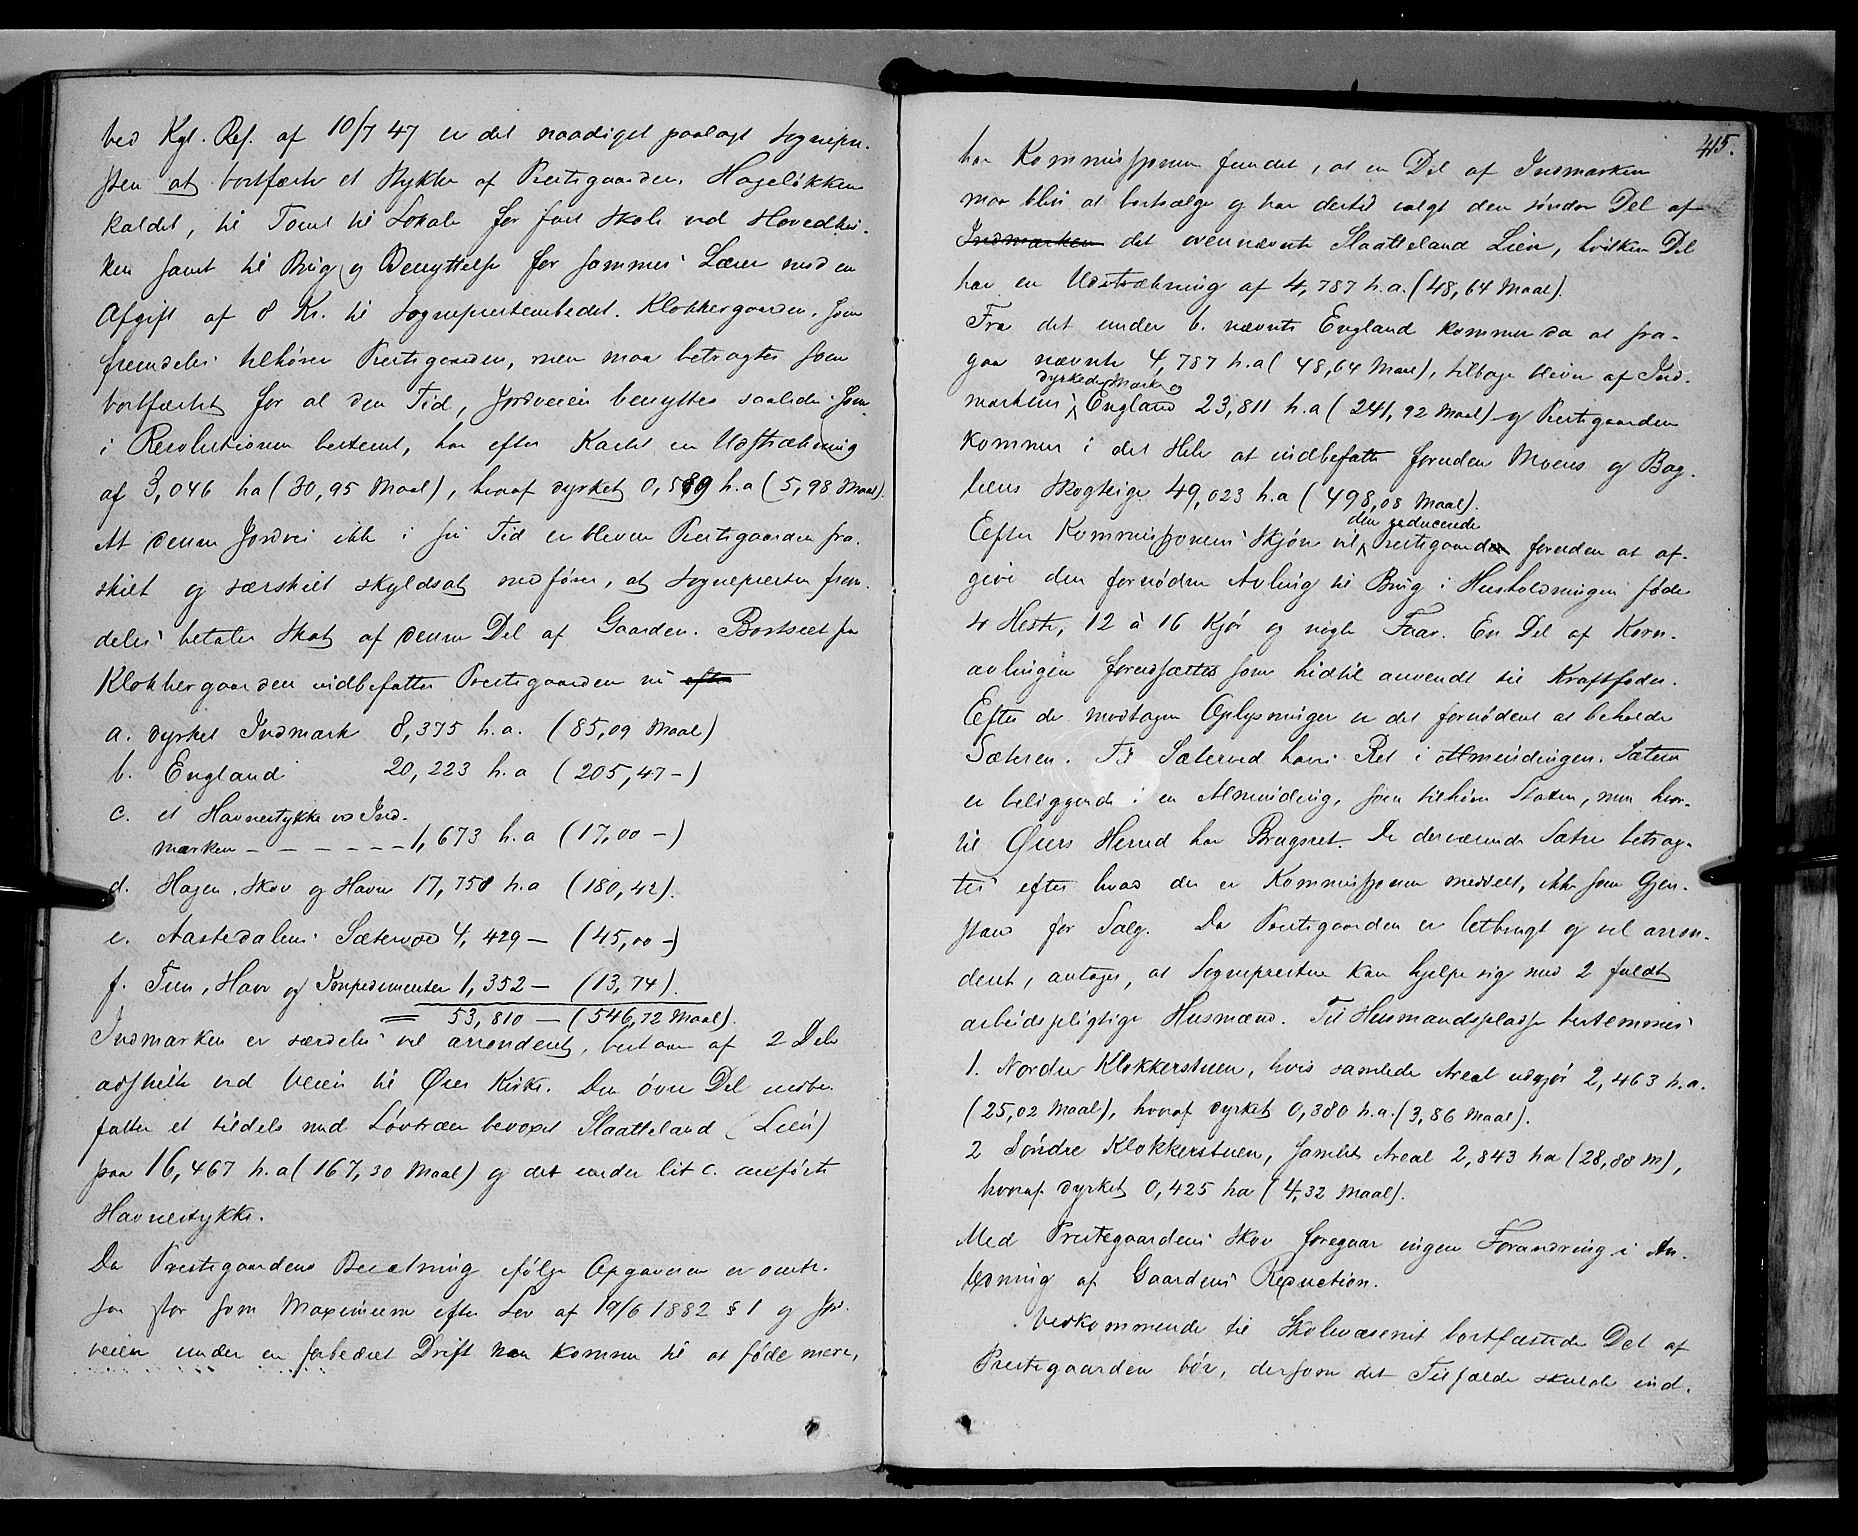 ved Kgl. Res. af 10/7 47 er det naadigst paalagt Sognepre-
sten at bortfæste et Stykke af Prestgaarden, Hageløkken
kaldet, til Tomt til Lokale for fast Skole ved Hovedkir-
ken samt til Brug og Benyttelse for sammes Lærer mod en
Afgift af 8 Kr. til Sogneprestembedet. Klokkergaarden, som
fremdeles tilhører Prestgaarden, men maa betragtes som
bortfæstet for al den Tid, Jordveien benyttes saaledes som
i Resolutionen bestemt, har efter Kartet en Udstrækning
af 3,046 ha (30,95 Maal), hvoraf dyrket 0,589 h.a (5,98 Maal).
At denne Jordvei ikke i sin Tid er bleven Prestgaarden fra-
skilt og særskilt skyldsat medfører, at Sognepresten frem-
deles betaler Skat af denne Del af Gaarden. Bortseet fra
Klokkergaarden indbefatter Prestgaarden nu efter
a. dyrket Indmark 8,375 h.a. (85,09 Maal)
b. England 20,223 h.a (205,47 -)
c. et Havnestykke ved Ind-
marken - - - - - - 1,673 h.a (17,00 -)
d. Hagen, Skov og Havn 17,758 h.a (180,42).
e. Aastedalens Sæterved 4,429 - (45,00 -)
f. Tun, Have og Impedimenter 1,352 - (13,74).
= 53,810 - (546,72 Maal).
Indmarken er særdeles vel arronderet, bestaar af 2 Dele
adskilte ved Veien til Øiers Kirke. Den øvre Del indbe-
fatter et tildels med Løvtræer bevoxet Slaatteland (Lien)
paa 16,467 h.a (167,30 Maal) og det under lit c. anførte
Havnestykke.
Da Prestegaardens Besætning ifølge Opgaverne er omtr.
saa stor som Maximum efter Lov af 19/6 1882 § 1 og Jord-
veien under en forbedret Drift kan komme til at føde mere,
415.
har Kommissionen fundet, at en Del af Indmarken
maa blive at bortsælge og har dertil valgt den søndre Del af
Indmarken det ovennævnte Slaatteland Lien, hvilken Del
har en Udstrækning af 4,787 h.a. (48,64 Maal).
Fra det under b. nævnte England kommer da at fra-
gaa nævnte 4,787 h.a (48,64 Maal), tilbage bliver af Ind-
dyrkede Mark og
markens England 23,811 h.a (241,92 Maal) og Prestgaarden
kommer i det Hele at indbefatte foruden Moens og Bag-
liens Skogteige 49,023 h.a (498,08 Maal).
den reducerede
Efter Kommissionens Skjøn vil Prestgaard foruden at af-
give den fornødne Avling til Brug i Husholdningen føde
4 Heste, 12 à 16 Kjør og nogle Faar. En Del af Korn-
avlingen forudsættes som hidtil anvendt til Kraftfoder.
Efter de modtagne Oplysninger er det fornødent at beholde
Sæteren. Til Sæterved haves Ret i Almendingen. Sæteren
er beliggende i en Almending, som tilhører Staten, men hvor-
til Øiers Herred har Brugsret. De derværende Sætre betrag-
tes efter hvad der er Kommissionen meddelt, ikke som Gjen-
stand for Salg. Da Prestgaarden er letbrugt og vel arron-
deret, antages, at Sognepresten kan hjelpe sig med 2 fuldt
arbeidspligtige Husmænd. Til Husmandspladse bestemmes
1. Nordre Klokkerstuen, hvis samlede Areal udgjør 2,463 h.a.
(25,02 Maal), hvoraf dyrket 0,380 h.a. (3,86 Maal).
2 Søndre Klokkerstuen, samlet Areal 2,843 ha (28,88 M),
hvoraf dyrket 0,425 ha (4,32 Maal).
Med Prestegaardens Skov foregaar ingen Forandring i An-
ledning af Gaardens Reduction.
Vedkommende til Skolevæsenet bortfæstede Del af
Prestgaarden bør, dersom det Tilfælde skulde ind-